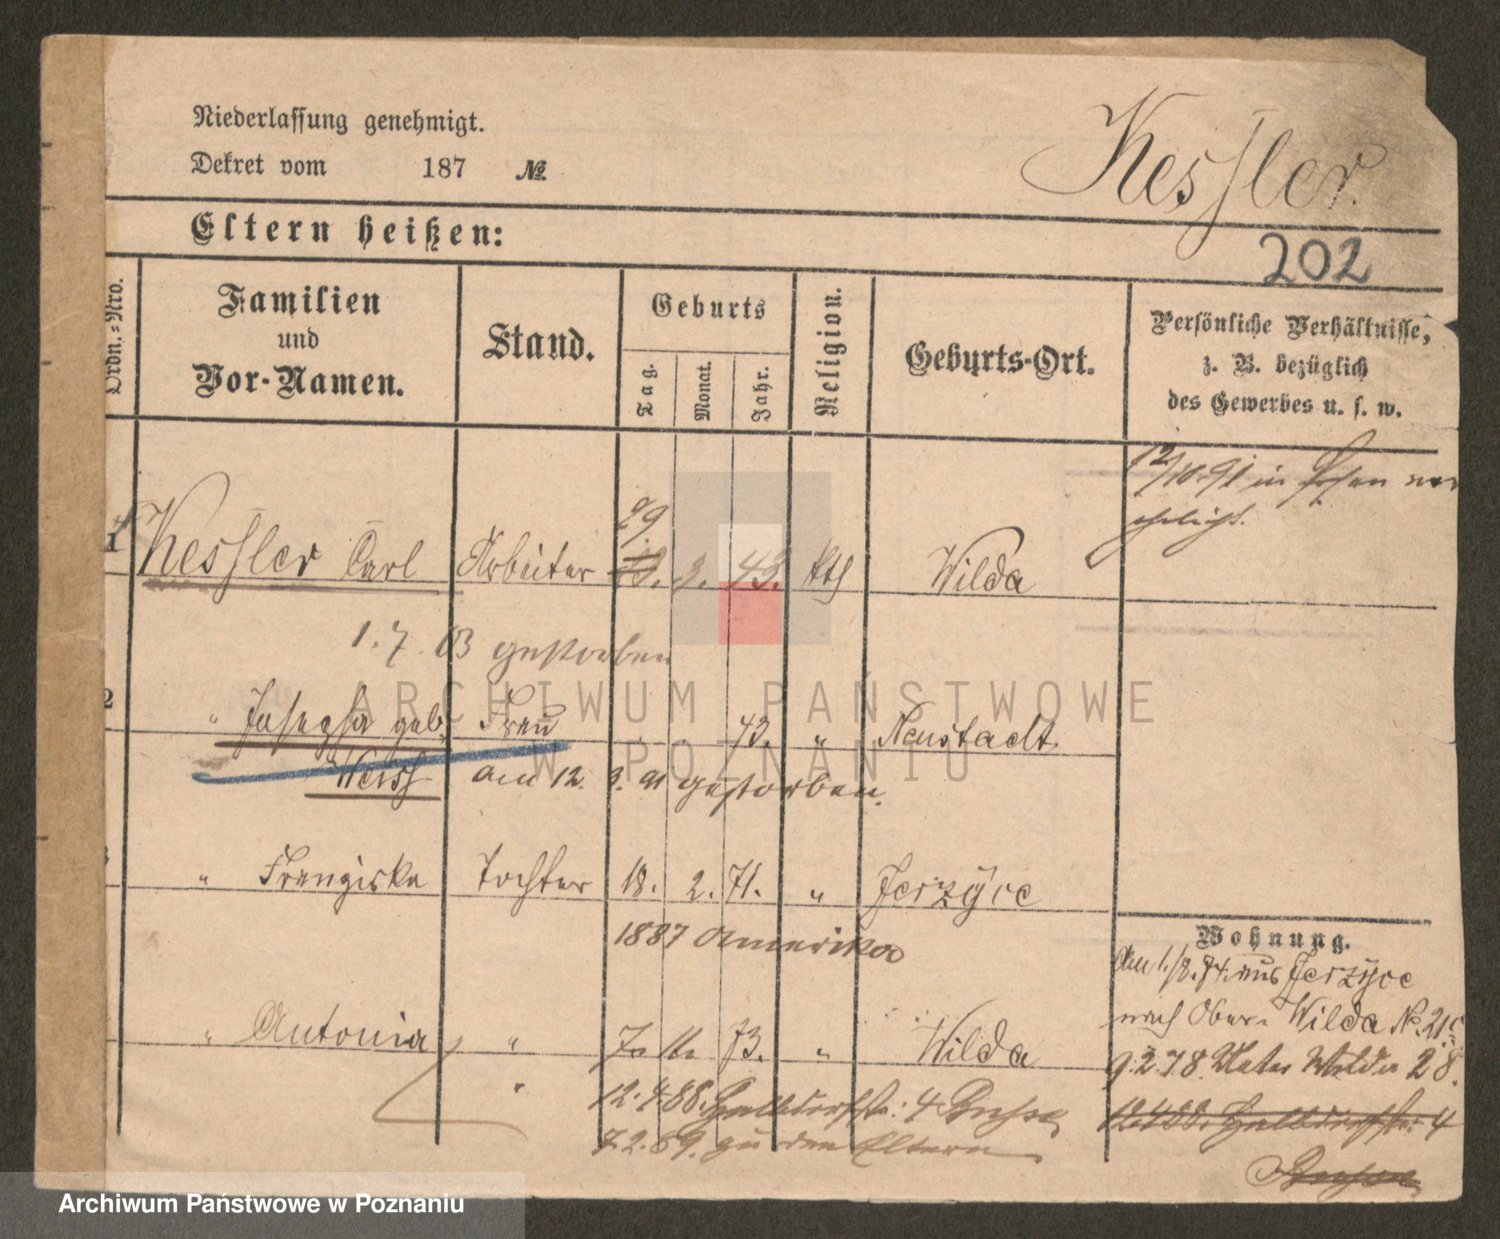 Niederlassung genehmigt.
Dekret vom 187 №
Kessler.
Eltern heißen:
202
Ordn.-Nro.
Familien
und
Vor-Namen.
Stand.
Geburts
Tag.
Monat.
Jahr.
Religion.
Geburts-Ort.
Persönliche Verhältnisse,
z. B. bezüglich
des Gewerbes u. s. w.
12/10.91 in Posen ver
ehelicht.
29.
1 Kessler Carl Arbeiter 3. 43. kth Wilda
1. 7. 03 gestorben
2 " Josepha geb. Frau 43. " Neustadt.
Weiss am 12. 3. 91 gestorben.
" Franziska Tochter 18. 2. 71. " Jerzyce
1887 Amerika
" Antonia " 7. 11. 73. " Wilda
"
12.4.88. Halbdorfstr: 4
7.2.89. zu den Eltern
Wohnung.
Am 1./8. 74. aus Jerzyce
nach Ober- Wilda No. 21
9.2.78. Unter Wilda 28.
12.4.88. Halbdorfstr: 4
ARCHIWUM PAŃSTWOWE
W POZNANIU
Archiwum Państwowe w Poznaniu